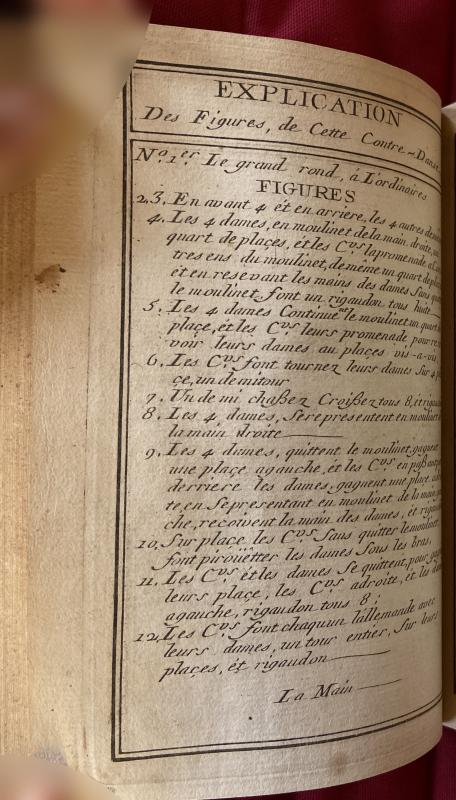 EXPLICATION
Des Figures, de Cette Contre-Danse
N.º 1.er Le grand rond, à L'ordinaires
FIGURES
2,3. En avant 4 ét en arriere, les 4 autres de
4. Les 4 dames, en moulinet de la main droite, un
quart de places, et les C.vs la promenade al
tre sens du moulinet, de même un quart de place
et en resevant les mains des dames Sans
le moulinet, font un rigaudon tous huite
5. Les 4 dames Continue.nt le moulinet un quart
place, et les C.vs leurs promenade, pour
voir leurs dames au places vis-a-vis
6. Les C.vs font tournez leurs dames Sur
çe, un demitour
7. Un demi chaßez Croißez tous 8, et
8. Les 4 dames, Se representent en moulinet
la main droite
9. Les 4 dames, quittent le moulinet, gagnent
une place agauche, ét les C.vs en paßant
derriere les dames, gagnent une place
te, en Se presentant en moulinet de la main
che, recoivent la main des dames, et
10. Sur place, les C.vs Sans quitter le moulinet
font piroüetter les dames Sous les bras,
11. Les C.vs ét les dames Se quittent, pour
leurs place, les C.vs adroite, et les
agauche, rigaudon tous 8 ;
12. Les C.vs font chaqu'un l'allemande avec
leurs dames, un tour entier, Sur leurs
plaçes, ét rigaudon
La Main